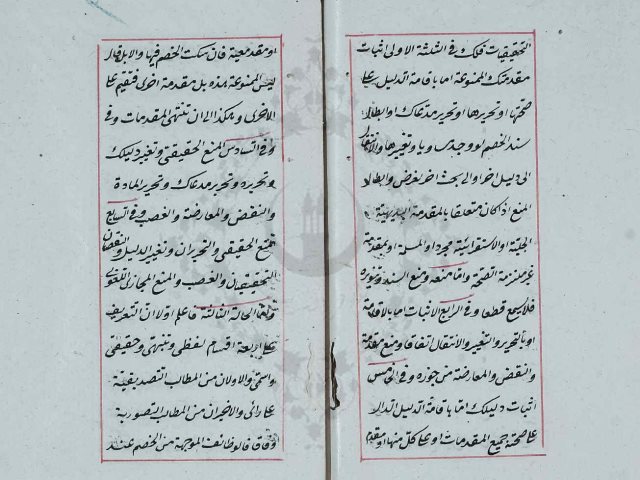 التحقيقيات فلك في الثلثة الاولى اثبات
مقدمتك الممنوعة اما باقامة الدليل على
صحتها او تحريرها او تحرير مدعاك او ابطال
سند الخصم لو وجد مساويا وتغييرها والانتقال
الى دليل اخر او الى بحث اخر بغرض وابطال
المنع اذ كان متعلقا بالمقدمة البديهية
الجلية او الاستقرائية مجردا او المسلمة او بمقدمة
غير ملتزمة الصحة واما منعه ومنع السند وتنوره
فلا يسمع قطعا وفي الرابع الاثبات اما بالاقامة
او بالتحرير والتغيير والانتقال اتفاقا ومنع مقدمة
والنقض والمعارضة من جوزه وفي الخامس
اثبات دليلك اما باقامة الدليل الدال
على صحة جميع المقدمات او على كل منها او مقدم
او مقدمة معينة فان سكت الخصم فيها والا بل قال
ليس الممنوعة هذه بل مقدمة اخرى فتقيم على
الاخرى وهكذا الى ان تنتهي المقدمات وفي
وفي السادس المنع الحقيقي وتغيير دليلك
وتحريره وتحرير مدعاك وتحرير المادة
والنقض والمعارضة والغصب وفي السابع
المنع الحقيقي والتحريران وتغيير الدليل والنقضان
التحقيقيان والغصب والمنع المجازي اللغوي
واما الحالة الثالثة فاعلم اولا ان التعريف
على اربعة اقسام لفظي وتنبيهي وحقيقي
واسمي والاولان من المطالب التصديقية
على رائي والاخيران من المطالب التصورية
وفاقا فالوظائف الموجهة من الخصم عند